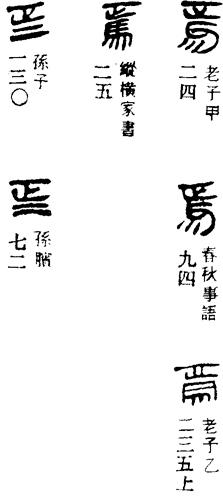 焉
老子甲
二四
焉
春秋事語
九四
焉
老子乙
二三五上
焉
縱橫家書
二五
焉
孫子
一三〇
焉
孫臏
七二